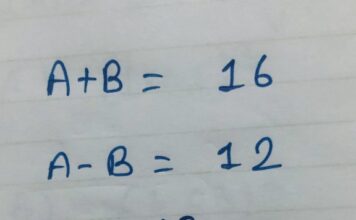 A+B = 16
A-B = 12